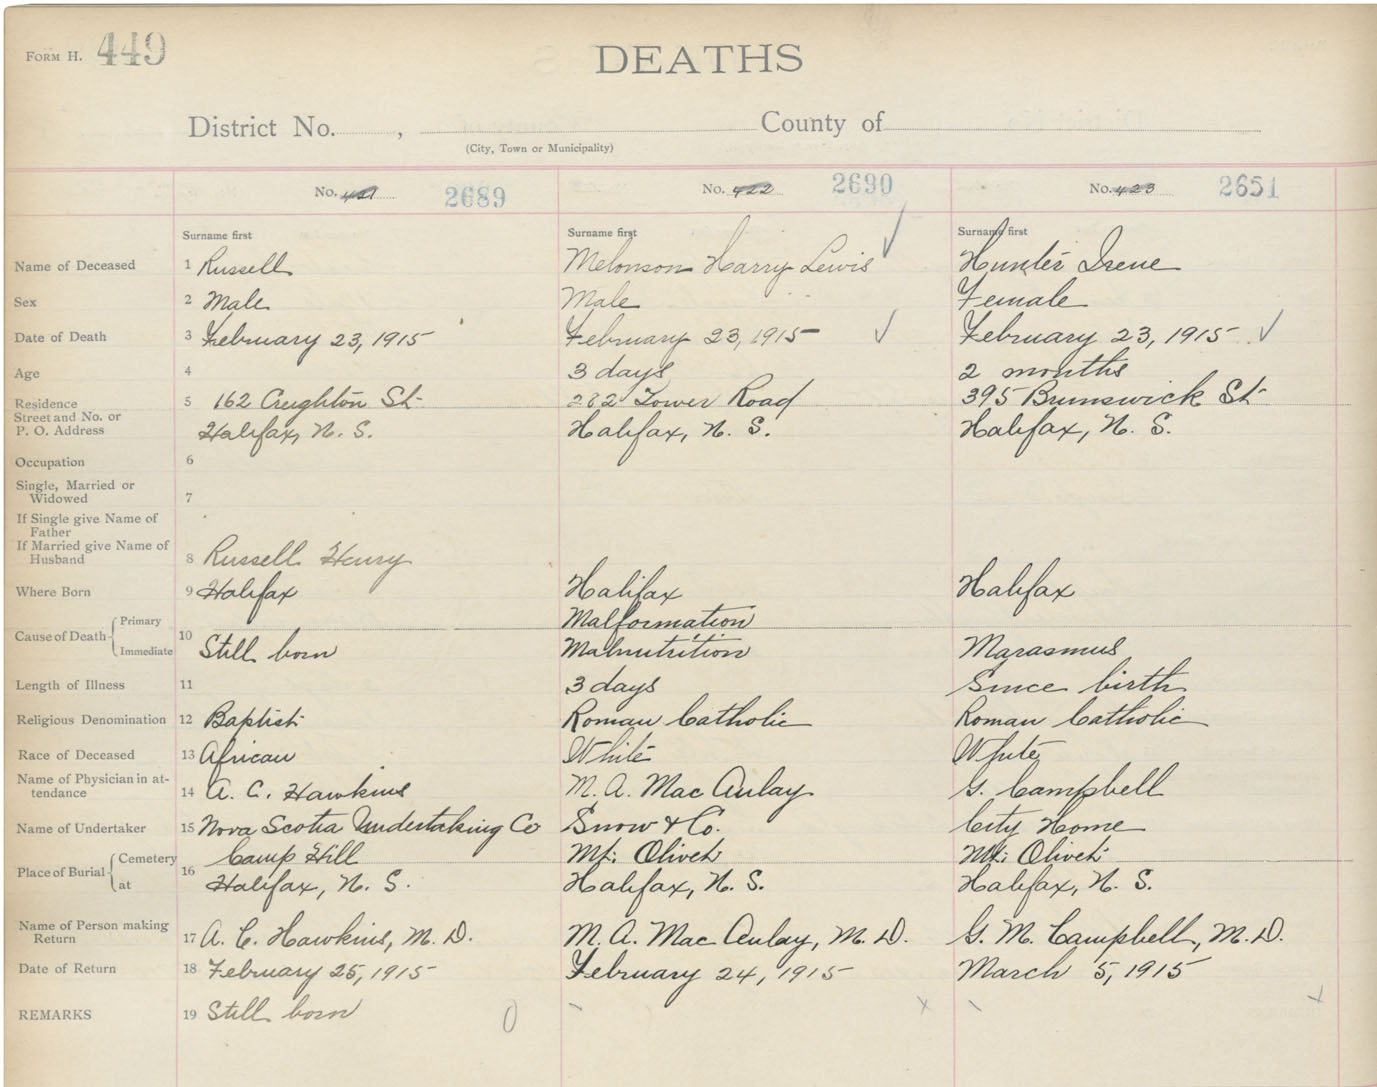 FORM H. 449
DEATHS
District No. , County of
(City, Town or Municipality)
No. 421 2689 No. 422 2690 No. 423 2651
Surname first Surname first Surname first
Name of Deceased 1 Russell Melonson Harry Lewis Hunter Irene
Sex 2 Male Male Female
Date of Death 3 February 23, 1915 February 23, 1915 February 23, 1915
Age 4 3 days 2 months
Residence 5 162 Creighton St. 282 Tower Road 395 Brunswick St.
Street and No. or
P. O. Address Halifax, N. S. Halifax, N. S. Halifax, N. S.
Occupation 6
Single, Married or
Widowed 7
If Single give Name of
Father
If Married give Name of
Husband 8 Russell Henry
Where Born 9 Halifax Halifax Halifax
Cause of Death Primary Malformation
10 Immediate Still born Malnutrition Marasmus
Length of Illness 11 3 days Since birth
Religious Denomination 12 Baptist Roman Catholic Roman Catholic
Race of Deceased 13 African White White
Name of Physician in at-
tendance 14 A. C. Hawkins M. A. Mac Aulay G. Campbell
Name of Undertaker 15 Nova Scotia Undertaking Co Snow & Co. City Home
Place of Burial Cemetery Camp Hill Mt. Olivet Mt. Olivet
16 at Halifax, N. S. Halifax, N. S. Halifax, N. S.
Name of Person making
Return 17 A. C. Hawkins, M. D. M. A. Mac Aulay, M. D. G. M. Campbell, M. D.
Date of Return 18 February 25, 1915 February 24, 1915 March 5, 1915
REMARKS 19 Still born